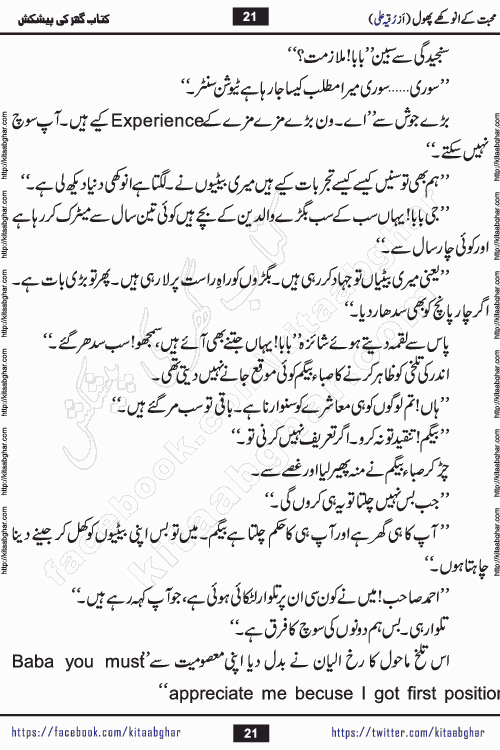 محبت کے انوکھے پھول (از رقیہ علی)
21
کتاب گھر کی پیشکش
سنجیدگی سے سبین ”بابا! ملازمت؟“
”سوری......سوری میرا مطلب کیسا جا رہا ہے ٹیوشن سنٹر۔“
بڑے جوش سے ”اے۔ون بڑے مزے مزے کے Experience کیے ہیں۔ آپ سوچ
نہیں سکتے۔“
”ہم بھی تو سنیں کیسے کیسے تجربات کیے ہیں میری بیٹیوں نے۔ لگتا ہے انوکھی دنیا دیکھ لی ہے۔“
”جی بابا! یہاں سب کے سب بگڑے والدین کے بچے ہیں کوئی تین سال سے میٹرک کر رہا ہے
اور کوئی چار سال سے۔“
”یعنی میری بیٹیاں تو جہاد کر رہی ہیں۔ بگڑوں کو راہِ راست پر لا رہی ہیں۔ پھر تو بڑی بات ہے۔
اگر چار پانچ کو بھی سدھار دیا۔“
پاس سے لقمہ دیتے ہوئے شائزہ ”بابا! یہاں جتنے بھی آئے ہیں، سمجھو! سب سدھر گئے۔“
اندر کی تلخی کو ظاہر کرنے کا صباء بیگم کوئی موقع جانے نہیں دیتی تھی۔
”ہاں! تم لوگوں کو ہی معاشرے کو سنوارنا ہے۔ باقی تو سب مر گئے ہیں۔“
”بیگم! تنقید تو نہ کرو۔ اگر تعریف نہیں کرنی تو۔“
چڑ کر صباء بیگم نے منہ پھیر لیا اور غصے سے۔
”جب بس نہیں چلتا تو یہ ہی کروں گی۔“
”آپ کا ہی گھر ہے اور آپ ہی کا حکم چلتا ہے بیگم۔ میں تو بس اپنی بیٹیوں کو کھل کر جینے دینا
چاہتا ہوں۔“
”احمد صاحب! میں نے کون سی ان پر تلوار لٹکائی ہوئی ہے، جو آپ کہہ رہے ہیں۔“
”تلوار ہی۔ بس ہم دونوں کی سوچ کا فرق ہے۔“
اس تلخ ماحول کا رخ الیان نے بدل دیا اپنی معصومیت سے ”Baba you must
appreciate me becuse I got first position“
http://kitaabghar.com http://kitaabghar.com http://kitaabghar.com http://kitaabghar.com http://kitaabghar.com http://kitaabghar.com
http://kitaabghar.com http://kitaabghar.com http://kitaabghar.com http://kitaabghar.com http://kitaabghar.com http://kitaabghar.com
کتاب گھر کی پیشکش
kitaabghar.com
facebook.com/kitaabghar
https://facebook.com/kitaabghar
21
https://twitter.com/kitaabghar